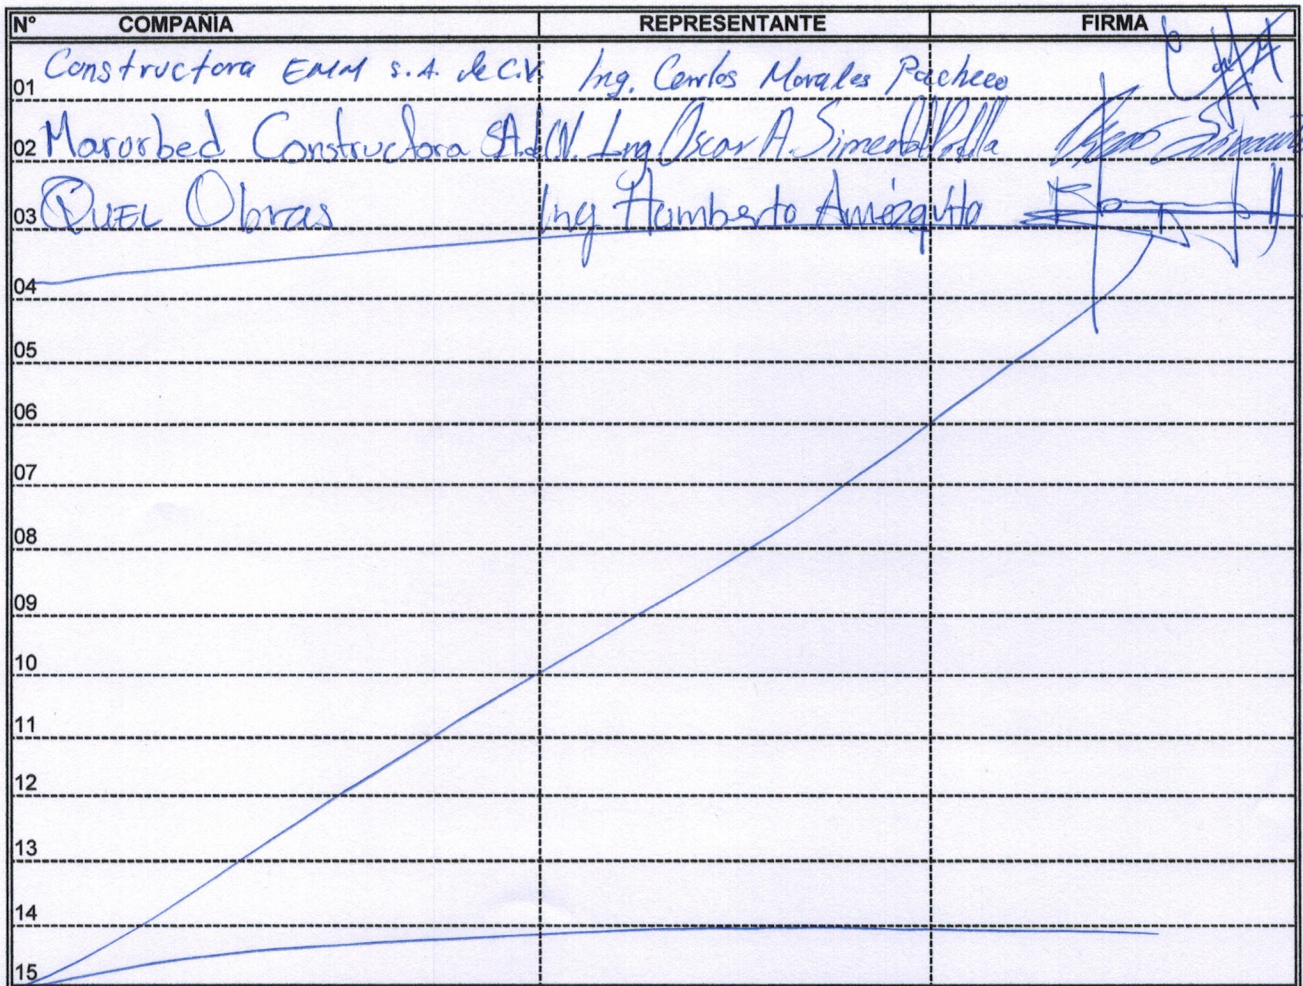 N° COMPAÑIA REPRESENTANTE FIRMA
01 Constructora EMM S.A. de C.V. Ing. Carlos Morales Pacheco
02 Marorbed Constructora SA.d.CV. Ing Oscar A. Simental
03 QUEL Obras Ing Humberto Amézquita
04
05
06
07
08
09
10
11
12
13
14
15